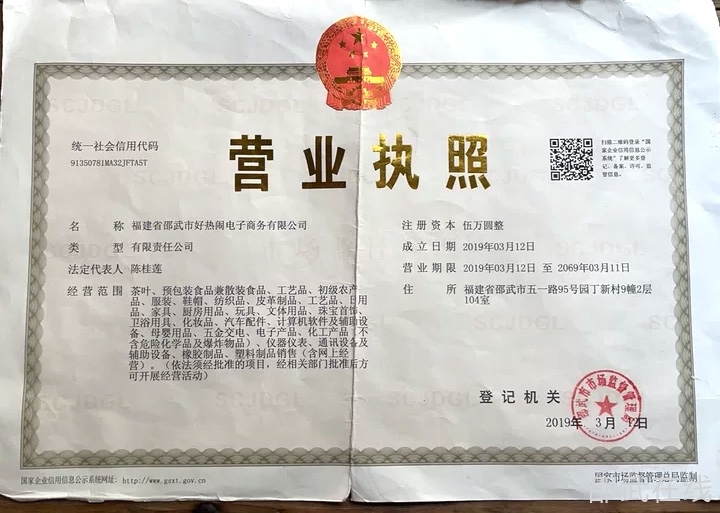 营业执照
统一社会信用代码
91350781MA32JFTA5T
扫描二维码登录“国
家企业信用信息公示
系统”了解更多登
记、备案、许可、监
管信息。
名 称 福建省邵武市好热闹电子商务有限公司
类 型 有限责任公司
法定代表人 陈桂莲
经营范围 茶叶、预包装食品兼散装食品、工艺品、初级农产
品、服装、鞋帽、纺织品、皮革制品、工艺品、日用
品、家具、厨房用品、玩具、文体用品、珠宝首饰、
卫浴用具、化妆品、汽车配件、计算机软件及辅助设
备、母婴用品、五金交电、电子产品、化工产品（不
含危险化学品及爆炸物品）、仪器仪表、通讯设备及
辅助设备、橡胶制品、塑料制品销售（含网上经
营）。（依法须经批准的项目，经相关部门批准后方
可开展经营活动）
注册资本 伍万圆整
成立日期 2019年03月12日
营业期限 2019年03月12日 至 2069年03月11日
住 所 福建省邵武市五一路95号园丁新村9幢2层
104室
登记机关
邵武市市场监督管理局
2019年 3月 12日
国家企业信用信息公示系统网址：http://www.gsxt.gov.cn
国家市场监督管理总局监制
SCJDGL